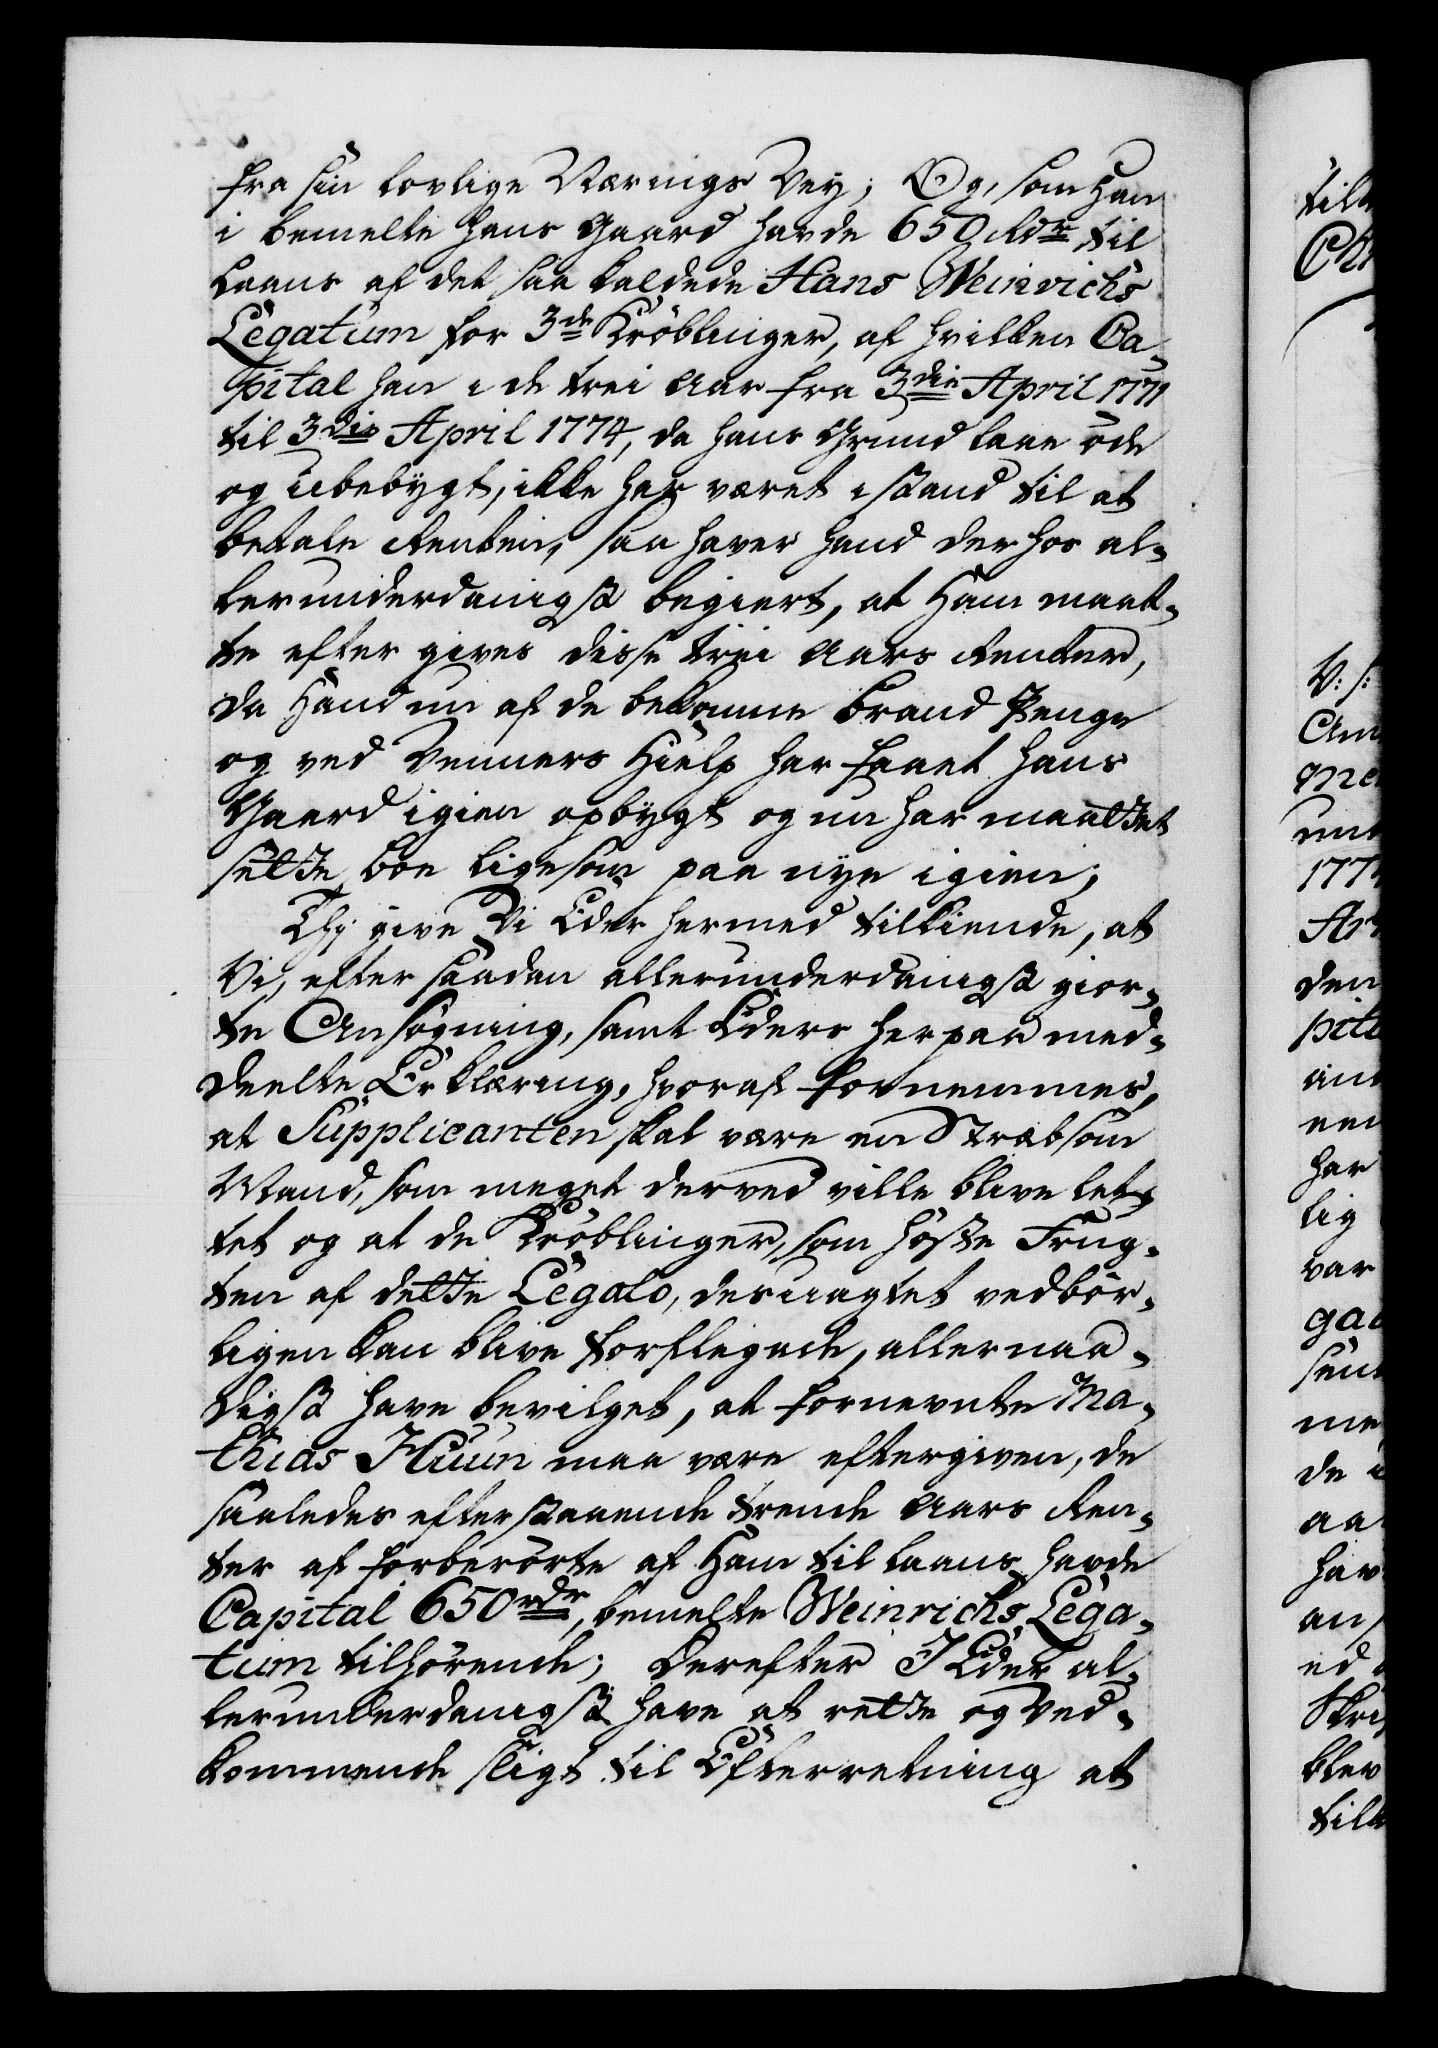 fra sin lovlige Nærings Vey; Og, som Han
i bemelte Hans Gaard havde 650 Rdr til
Laans af det saa kaldede Hans Weinrichs
Legatum for 3de Kröblinger, af hvilken Ca-
pital han i de trei Aar fra 3die April 1771
til 3die April 1774, da hans Grund laae öde
og ubebygt, ikke har været i stand til at
betale Renten, saa haver Hand derhos al-
lerunderdanigst begiert, at Ham maat-
te efter gives disse trei Aars Renter,
da Hand nu af de bekomne Brand Penge
og ved Venners Hielp har faaet Hans
Gaard igien opbygt og nu har maattet
sette boe ligesom paa nye igien;
Thj give Vi Eder hermed tilkiende, at
Vi, efter saadan allerunderdanigst gior-
te Ansögning, samt Eders herpaa med-
deelte Erklæring, hvoraf fornemmes,
at Supplicanten skal være en Stræbsom
Mand, som meget derved ville blive let-
tet og at de Kröblinger, som höste Frug-
ten af dette Legato, desuagtet vedbör-
ligen kan blive forflegede, allernaa-
digst have bevilget, at fornevnte Ma-
thias Huun maa være eftergiven, de
saaledes efterstaaende trende Aars Ren-
ter af forberörte af Ham til Laans havde
Capital 650 rdr, bemelte Weinrichs Lega-
tum tilhörende; Derefter I Eder al-
lerunderdanigst have at rette og Ved-
kommende sligt til Efterretning at